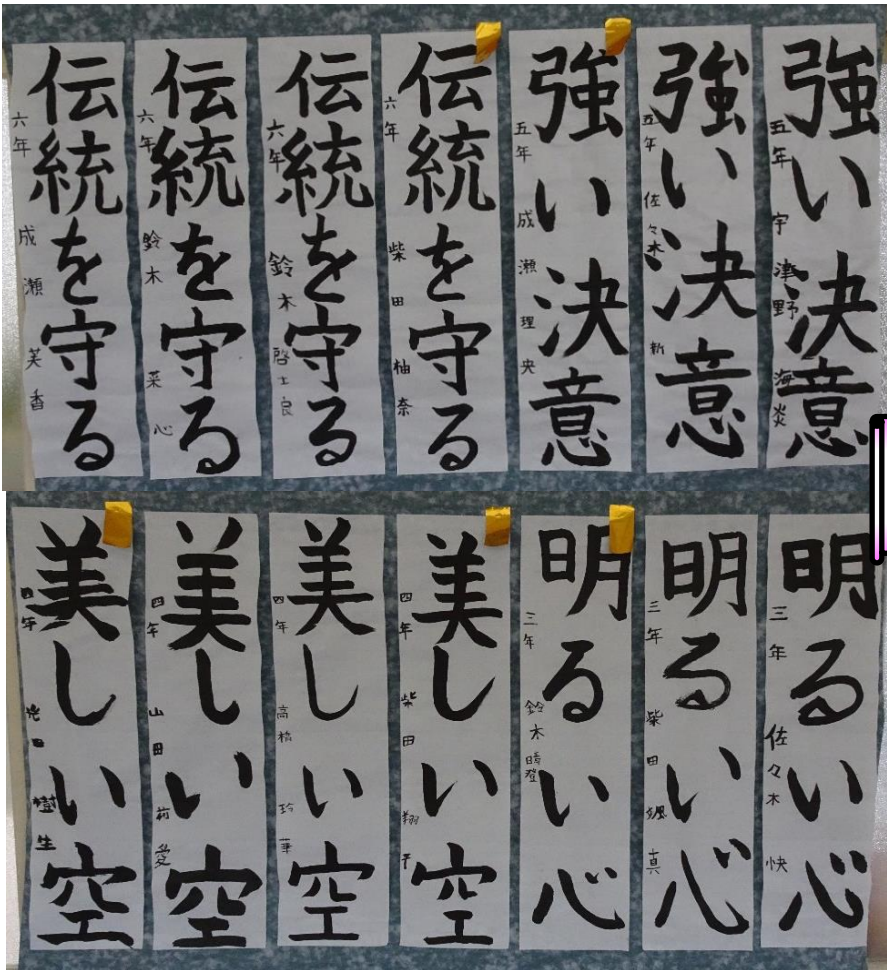 強い決意
五年 宇津野 海炎
強い決意
五年 佐々木 新
強い決意
五年 成瀬 理央
伝統を守る
六年 柴田 柚奈
伝統を守る
六年 鈴木 啓士良
伝統を守る
六年 鈴木 菜心
伝統を守る
六年 成瀬 芙香
明るい心
三年 佐々木 快
明るい心
三年 柴田 颯真
明るい心
三年 鈴木 暖登
美しい空
四年 柴田 翔平
美しい空
四年 高橋 玲華
美しい空
四年 山田 莉愛
美しい空
四年 樹生